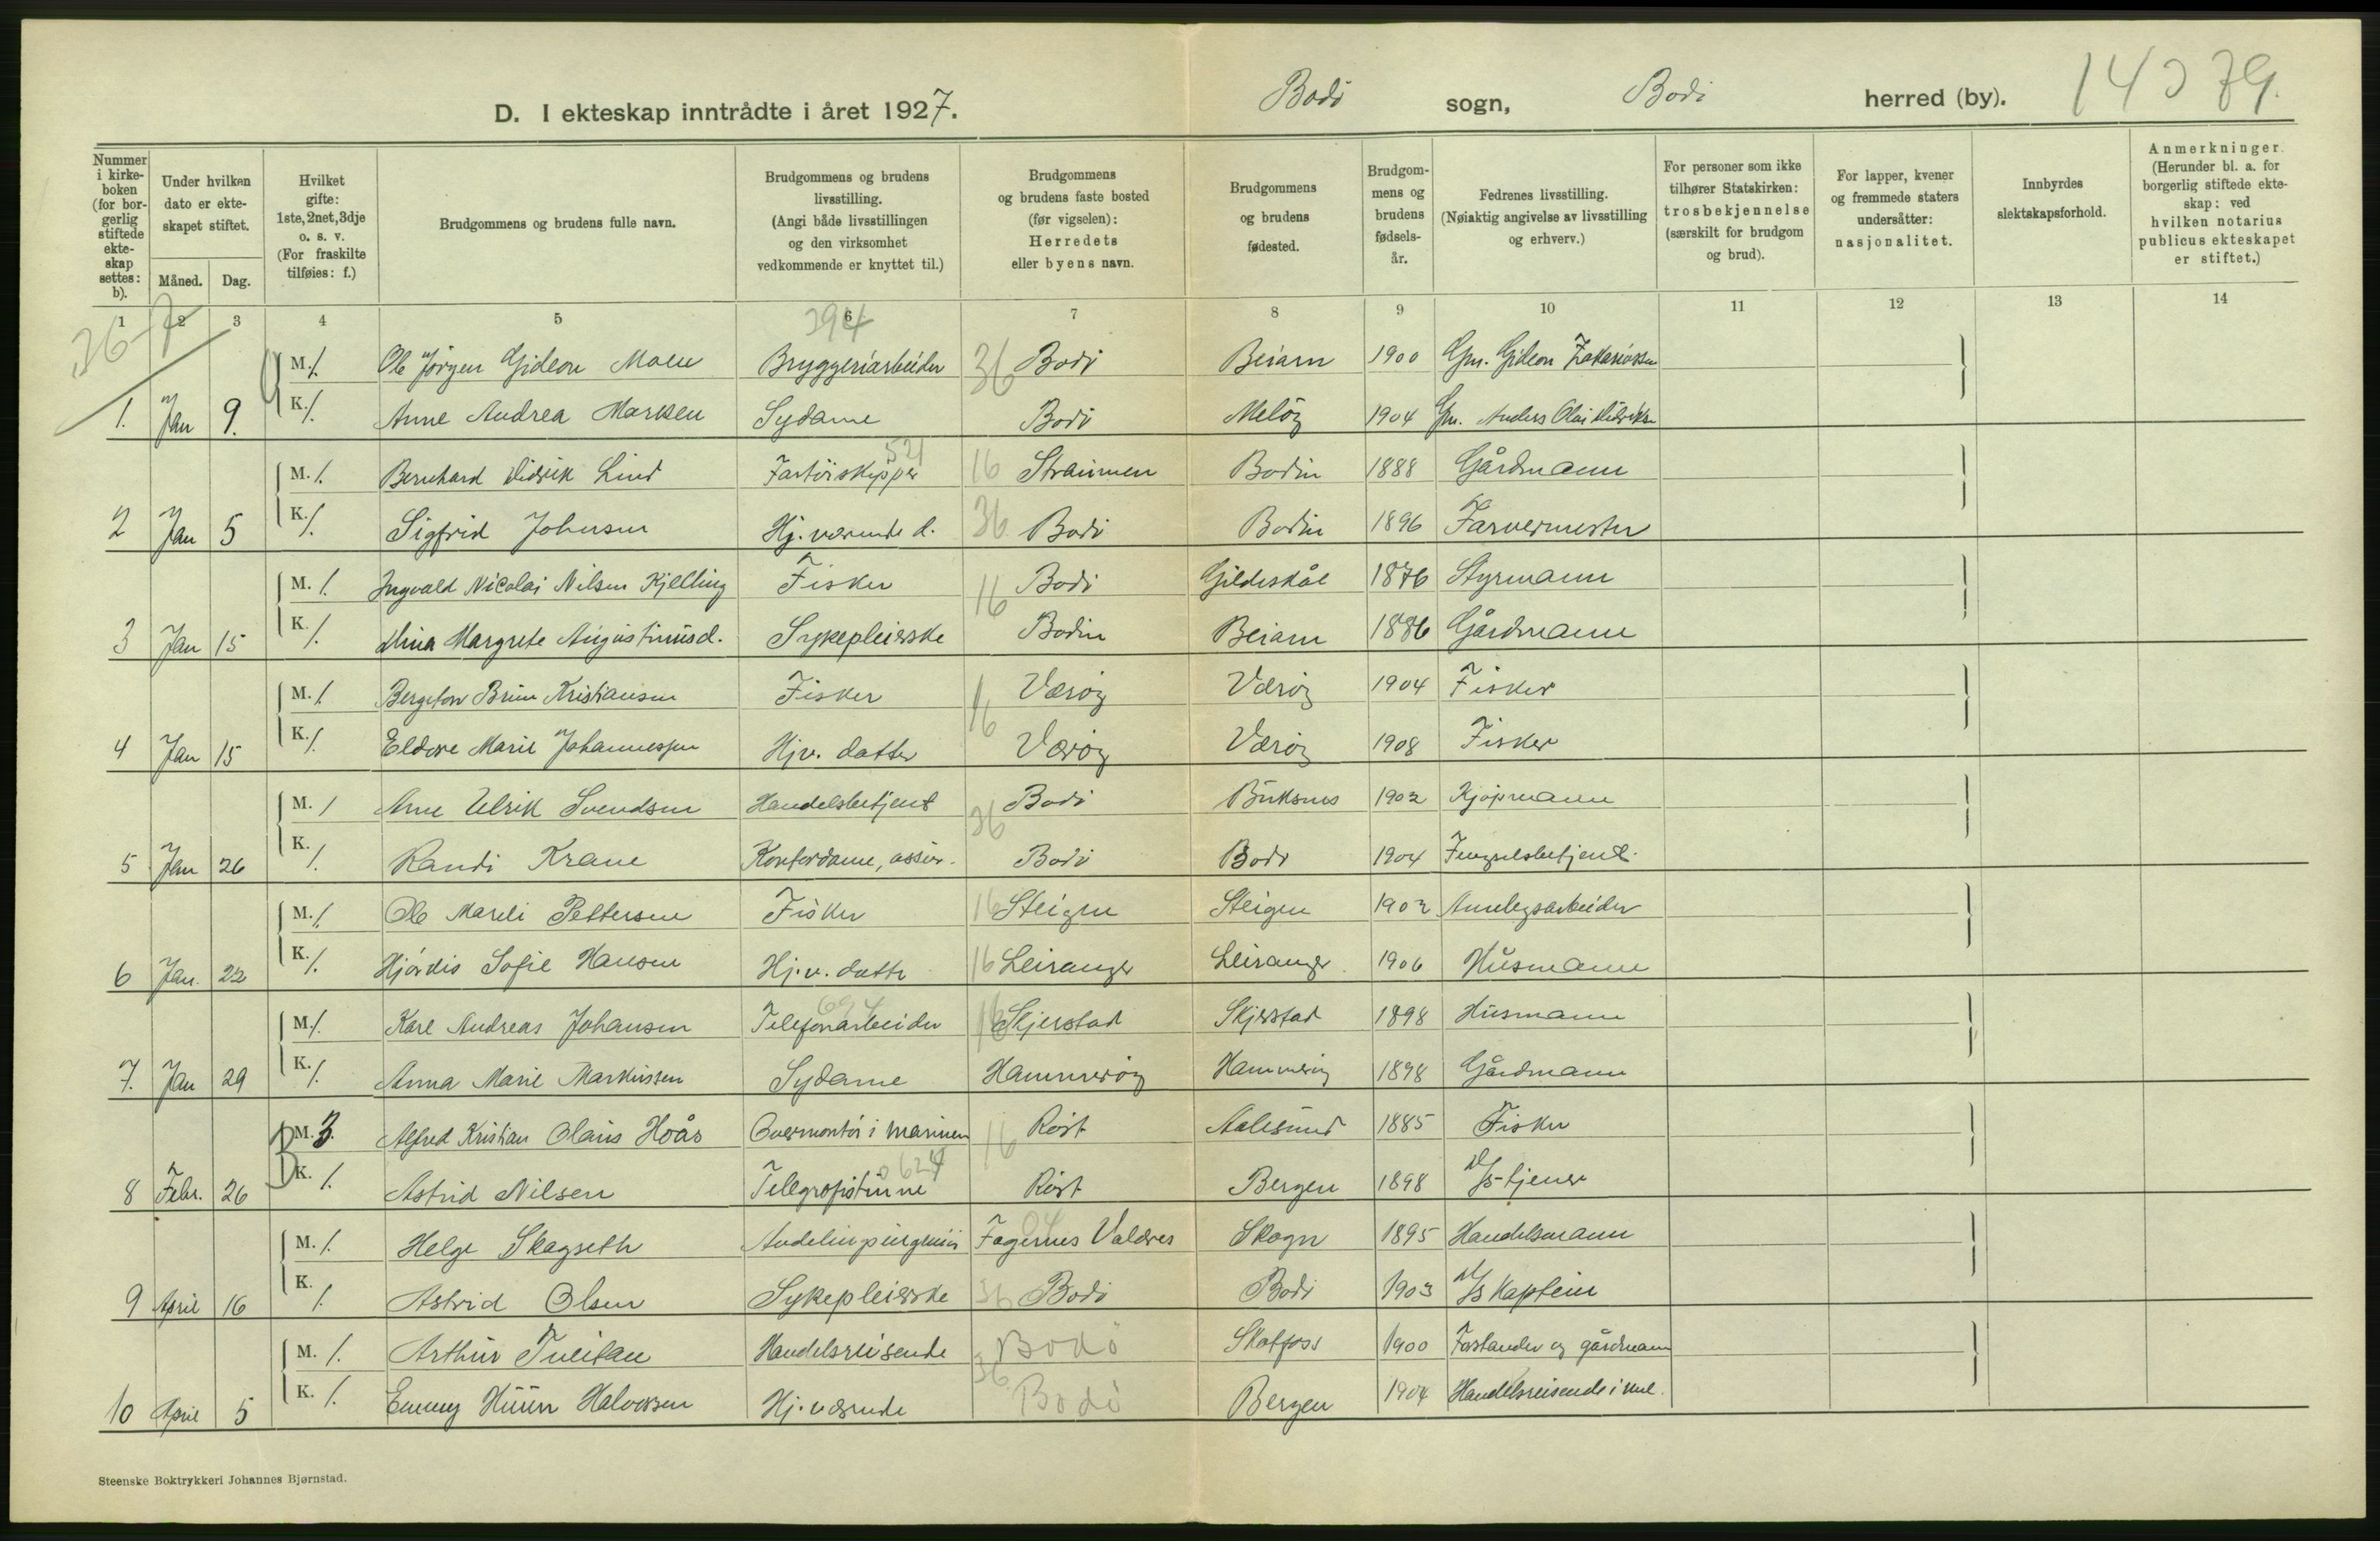 D. I ekteskap inntrådte i året 1927. Bodö sogn, Bodö herred (by). 14379.
Nummer i kirkeboken (for borgerlig stiftede ekteskap settes: b). Under hvilken dato er ekteskapet stiftet. Måned. Dag. Hvilket gifte: 1ste, 2net, 3dje o. s. v. (For fraskilte tilføies: f.) Brudgommens og brudens fulle navn. Brudgommens og brudens livsstilling. (Angi både livsstillingen og den virksomhet vedkommende er knyttet til.) Brudgommens og brudens faste bosted (før vigselen): Herredets eller byens navn. Brudgommens og brudens fødested. Brudgommens og brudens fødselsår. Fedrenes livsstilling. (Nøiaktig angivelse av livsstilling og erhverv.) For personer som ikke tilhører Statskirken: trosbekjennelse (særskilt for brudgom og brud). For lapper, kvener og fremmede staters undersåtter: nasjonalitet. Innbyrdes slektskapsforhold. Anmerkninger. (Herunder bl. a. for borgerlig stiftede ekteskap: ved hvilken notarius publicus ekteskapet er stiftet.)
1 2 3 4 5 6 7 8 9 10 11 12 13 14
36-7 394
M. 1. Ole Jörgen Gideon Moen Bryggeriarbeider 36 Bodö Beiarn 1900 Gm. Gideon Zakariassen
1. Jan 9. K. 1. Anne Andrea Marken Sydame Bodö Melöy 1904 Gm. Anders Olai Didriksen
521
M. 1. Bernhard Didrik Lind Fartöiskipper 16 Straumen Bodin 1888 Gårdmann
2 Jan 5 K. 1. Sigfrid Johnsen Hj. værende d. 36 Bodö Bodin 1896 Farvermester
M. 1. Ingvald Nicolai Nilsen Kjelling Fisker 16 Bodö Gildeskål 1876 Styrmann
3 Jan 15 K. 1. Mina Margrete Augustinusd. Sykepleierske Bodin Beiarn 1886 Gårdmann
M. 1. Bergeton Brun Kristiansen Fisker 16 Væröy Væröy 1904 Fisker
4 Jan 15 K. 1. Eldore Marie Johannessen Hjv. datter Væröy Væröy 1908 Fisker
M. 1 Arne Ulrik Svendsen Handelsbetjent 36 Bodö Buksnes 1902 Kjöpmann
5 Jan 26 K. 1. Randi Krane Kontordame, assur. Bodö Bodö 1904 Fengselsbetjent.
M. 1. Ole Mareli Pettersen Fisker 16 Steigen Steigen 1902 Anlegsarbeider
6 Jan. 22 K. 1. Hjördis Sofie Hansen Hj.v. datter 16 Leiranger Leiranger 1906 Husmann
694
M. 1. Karl Andreas Johansen Telefonarbeider 16 Skjerstad Skjerstad 1898 Husmann
7. Jan 29 K. 1. Anna Marie Markussen Sydame Hammeröy Hammeröy 1898 Gårdmann
M. 3. Alfred Kristian Olaus Hoås Overmontör i marinen 16 Röst Aalesund 1885 Fisker
0624
8 Febr. 26 K. 1. Astrid Nilsen Telegrafistinne Röst Bergen 1898 D/S-tjener
04
M. 1. Helge Skagseth Fagernes Valdres Skogn 1895 Handelsmann
9 April 16 K. 1. Astrid Olsen Sykepleierske 36 Bodö Bodö 1903 D/S Kaptein
M. 1. Arthur Tveitan Handelsreisende 36 Bodö Skotfoss 1900 Forstander og gårdmann
10 April 5 K. 1. Emmy Huun Halvorsen Hj. værende Bodö Bergen 1904 Handelsreisende i
Steenske Boktrykkeri Johannes Bjørnstad.